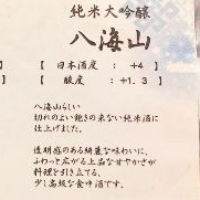 純米大吟醸
八海山
】 [ 日本酒度 : +4 ]
】 [ 酸度 : +1.3 ]
八海山らしい
切れのよい飽きの来ない純米酒に
仕上げました。
透明感のある綺麗な味わいに、
ふわっと広がる上品な甘やかさが
料理を引き立てる、
少し高級な食中酒です。